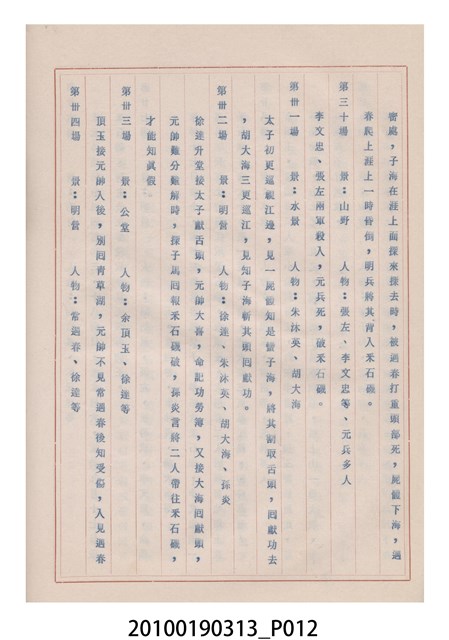 密處，子海在涯上面探來探去時，被遇春打重頭部死，屍體下海，遇
春爬上涯上一時昏倒，明兵將其背入釆石磯。
第三十場　　景：山野　　人物：張左、李文忠等、元兵多人
李文忠、張左兩軍殺入，元兵死，破釆石磯。
第卅一場　　景：水景　　人物：朱沐英、胡大海
太子初更巡視江邊，見一屍體知是蠻子海，將其割取舌頭，囘獻功去
，胡大海三更巡江，見知子海斬其頭囘獻功。
第卅二場　　景：明營　　人物：徐達、朱沐英、胡大海、孫炎
徐達升堂接太子獻舌頭，元帥大喜，命記功勞簿，又接大海囘獻頭，
元帥難分難解時，探子馬囘報釆石磯破，孫炎言將二人帶往釆石磯，
才能知眞假
第卅三場　　景：公堂　　人物：余頂玉、徐達等
頂玉接元帥入後，別囘靑草湖，元帥不見常遇春後知受傷，入見遇春
第卅四場　　景：明營　　人物：常遇春、徐達等
20100190313_P012